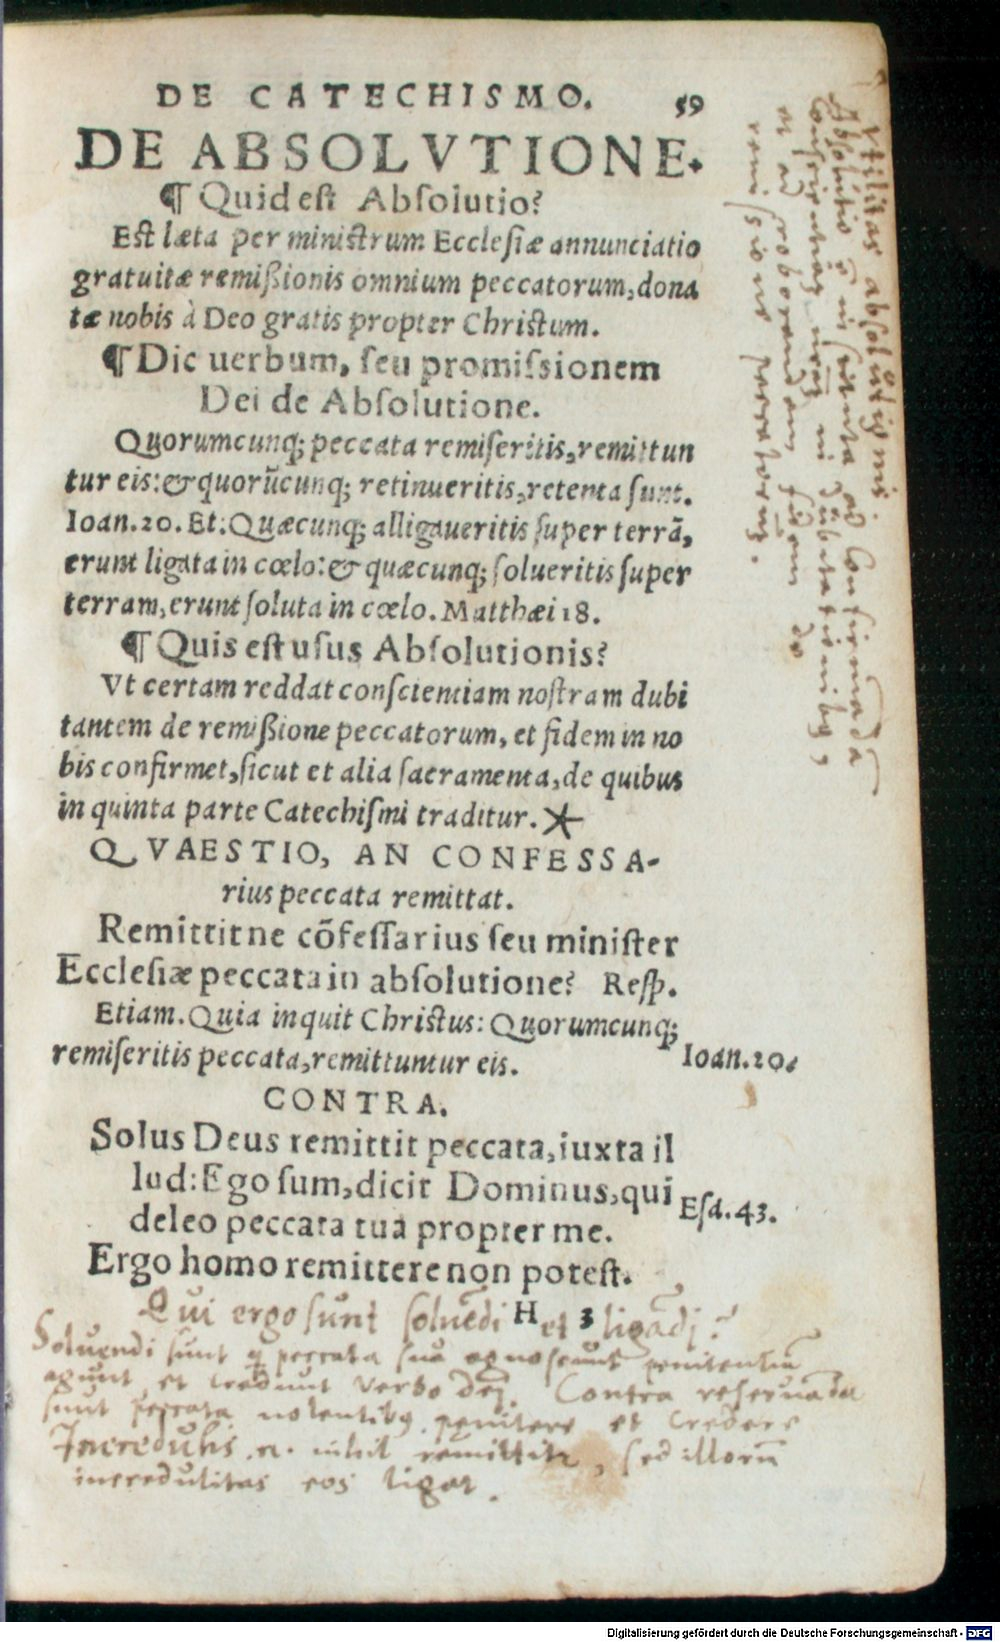 DE CATECHISMO. 59
DE ABSOLVTIONE.
¶ Quid est Absolutio?
Est læta per ministrum Ecclesiæ annunciatio
gratuitæ remißionis omnium peccatorum, dona
tæ nobis à Deo gratis propter Christum.
¶ Dic uerbum, seu promissionem
Dei de Absolutione.
Quorumcunq; peccata remiseritis, remittun
tur eis: & quorūcunq; retinueritis, retenta sunt.
Ioan. 20. Et: Quæcunq; alligaueritis super terrā,
erunt ligata in cœlo: & quæcunq; solueritis super
terram, erunt soluta in cœlo. Matthæi 18.
¶ Quis est usus Absolutionis?
Vt certam reddat conscientiam nostram dubi
tantem de remißione peccatorum, et fidem in no
bis confirmet, sicut et alia sacramenta, de quibus
in quinta parte Catechismi traditur.
QVAESTIO, AN CONFESSA-
rius peccata remittat.
Remittitne cōfessarius seu minister
Ecclesiæ peccata in absolutione? Resp.
Etiam. Quia inquit Christus: Quorumcunq;
remiseritis peccata, remittuntur eis.
Ioan. 20.
CONTRA.
Solus Deus remittit peccata, iuxta il
lud: Ego sum, dicit Dominus, qui
deleo peccata tua propter me.
Esa. 43.
Ergo homo remittere non potest.
H 3
Qui ergo sunt soluēdi et ligādj?
Soluendi sunt q peccata sua agnoscunt penitentiā
agunt et credunt verbo Dej. Contra reseruāda
sunt peccata nolentibꝯ penitere et credere
Incredulis .n. nihil remittitr, sed illorū
incredulitas eos ligat.
Vtilitas absolutionis.
Absolutio ē instituta ad confirmādā
conscientias nrās in dubitationibꝯ,
et ad roborandam fidem de
remissione peccatorum.
Digitalisierung gefördert durch die Deutsche Forschungsgemeinschaft - DFG